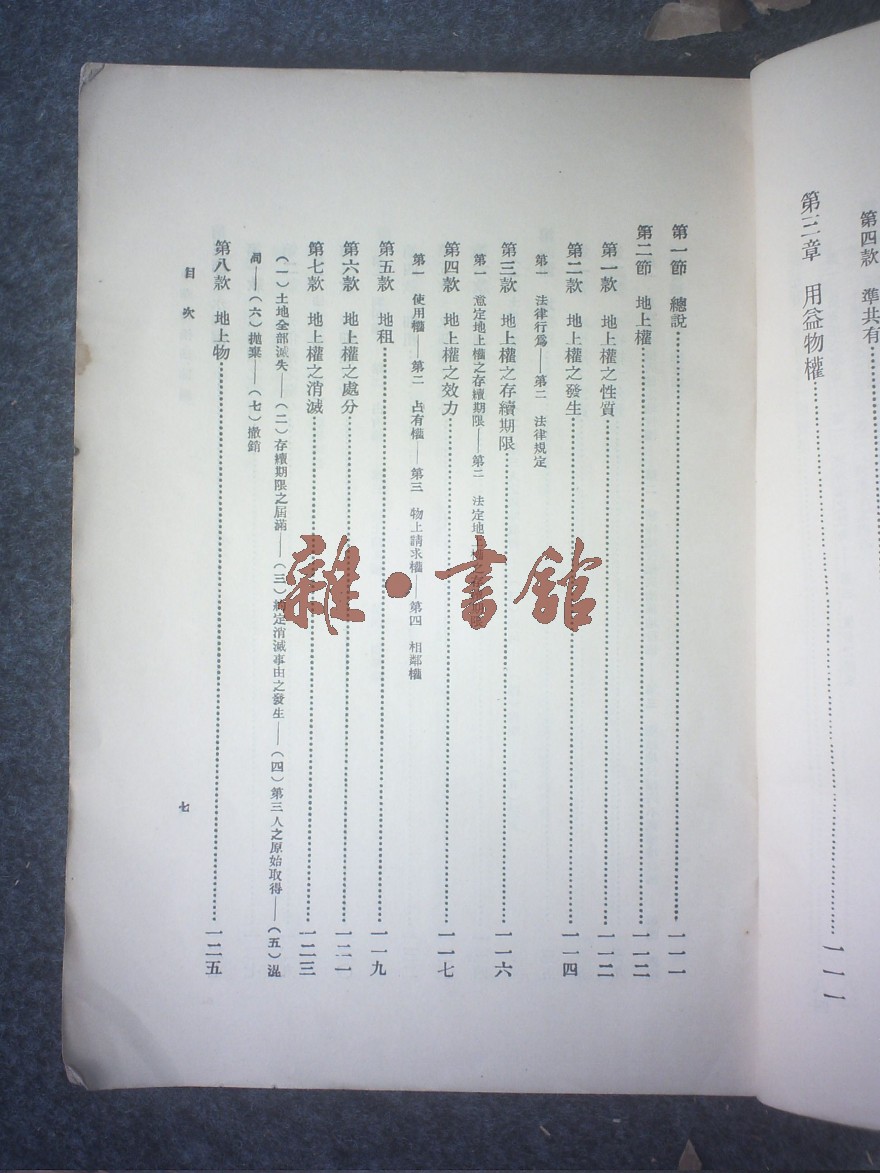 第四款　準共有
第三章　用益物權…………一一一
第一節　總說…………一一一
第二節　地上權…………一一二
第一款　地上權之性質…………一一二
第二款　地上權之發生…………一一四
第一　法律行爲——第二　法律規定
第三款　地上權之存續期限…………一一六
第一　意定地上權之存續期限——第二　法定地上權之存續期限
第四款　地上權之效力…………一一七
第一　使用權——第二　占有權——第三　物上請求權——第四　相鄰權
第五款　地租…………一一九
第六款　地上權之處分…………一二一
第七款　地上權之消滅…………一二三
（一）土地全部滅失——（二）存續期限之屆滿——（三）約定消滅事由之發生——（四）第三人之原始取得——（五）混
同——（六）拋棄——（七）撤銷
第八款　地上物…………一二五
目次
七
雜·書館